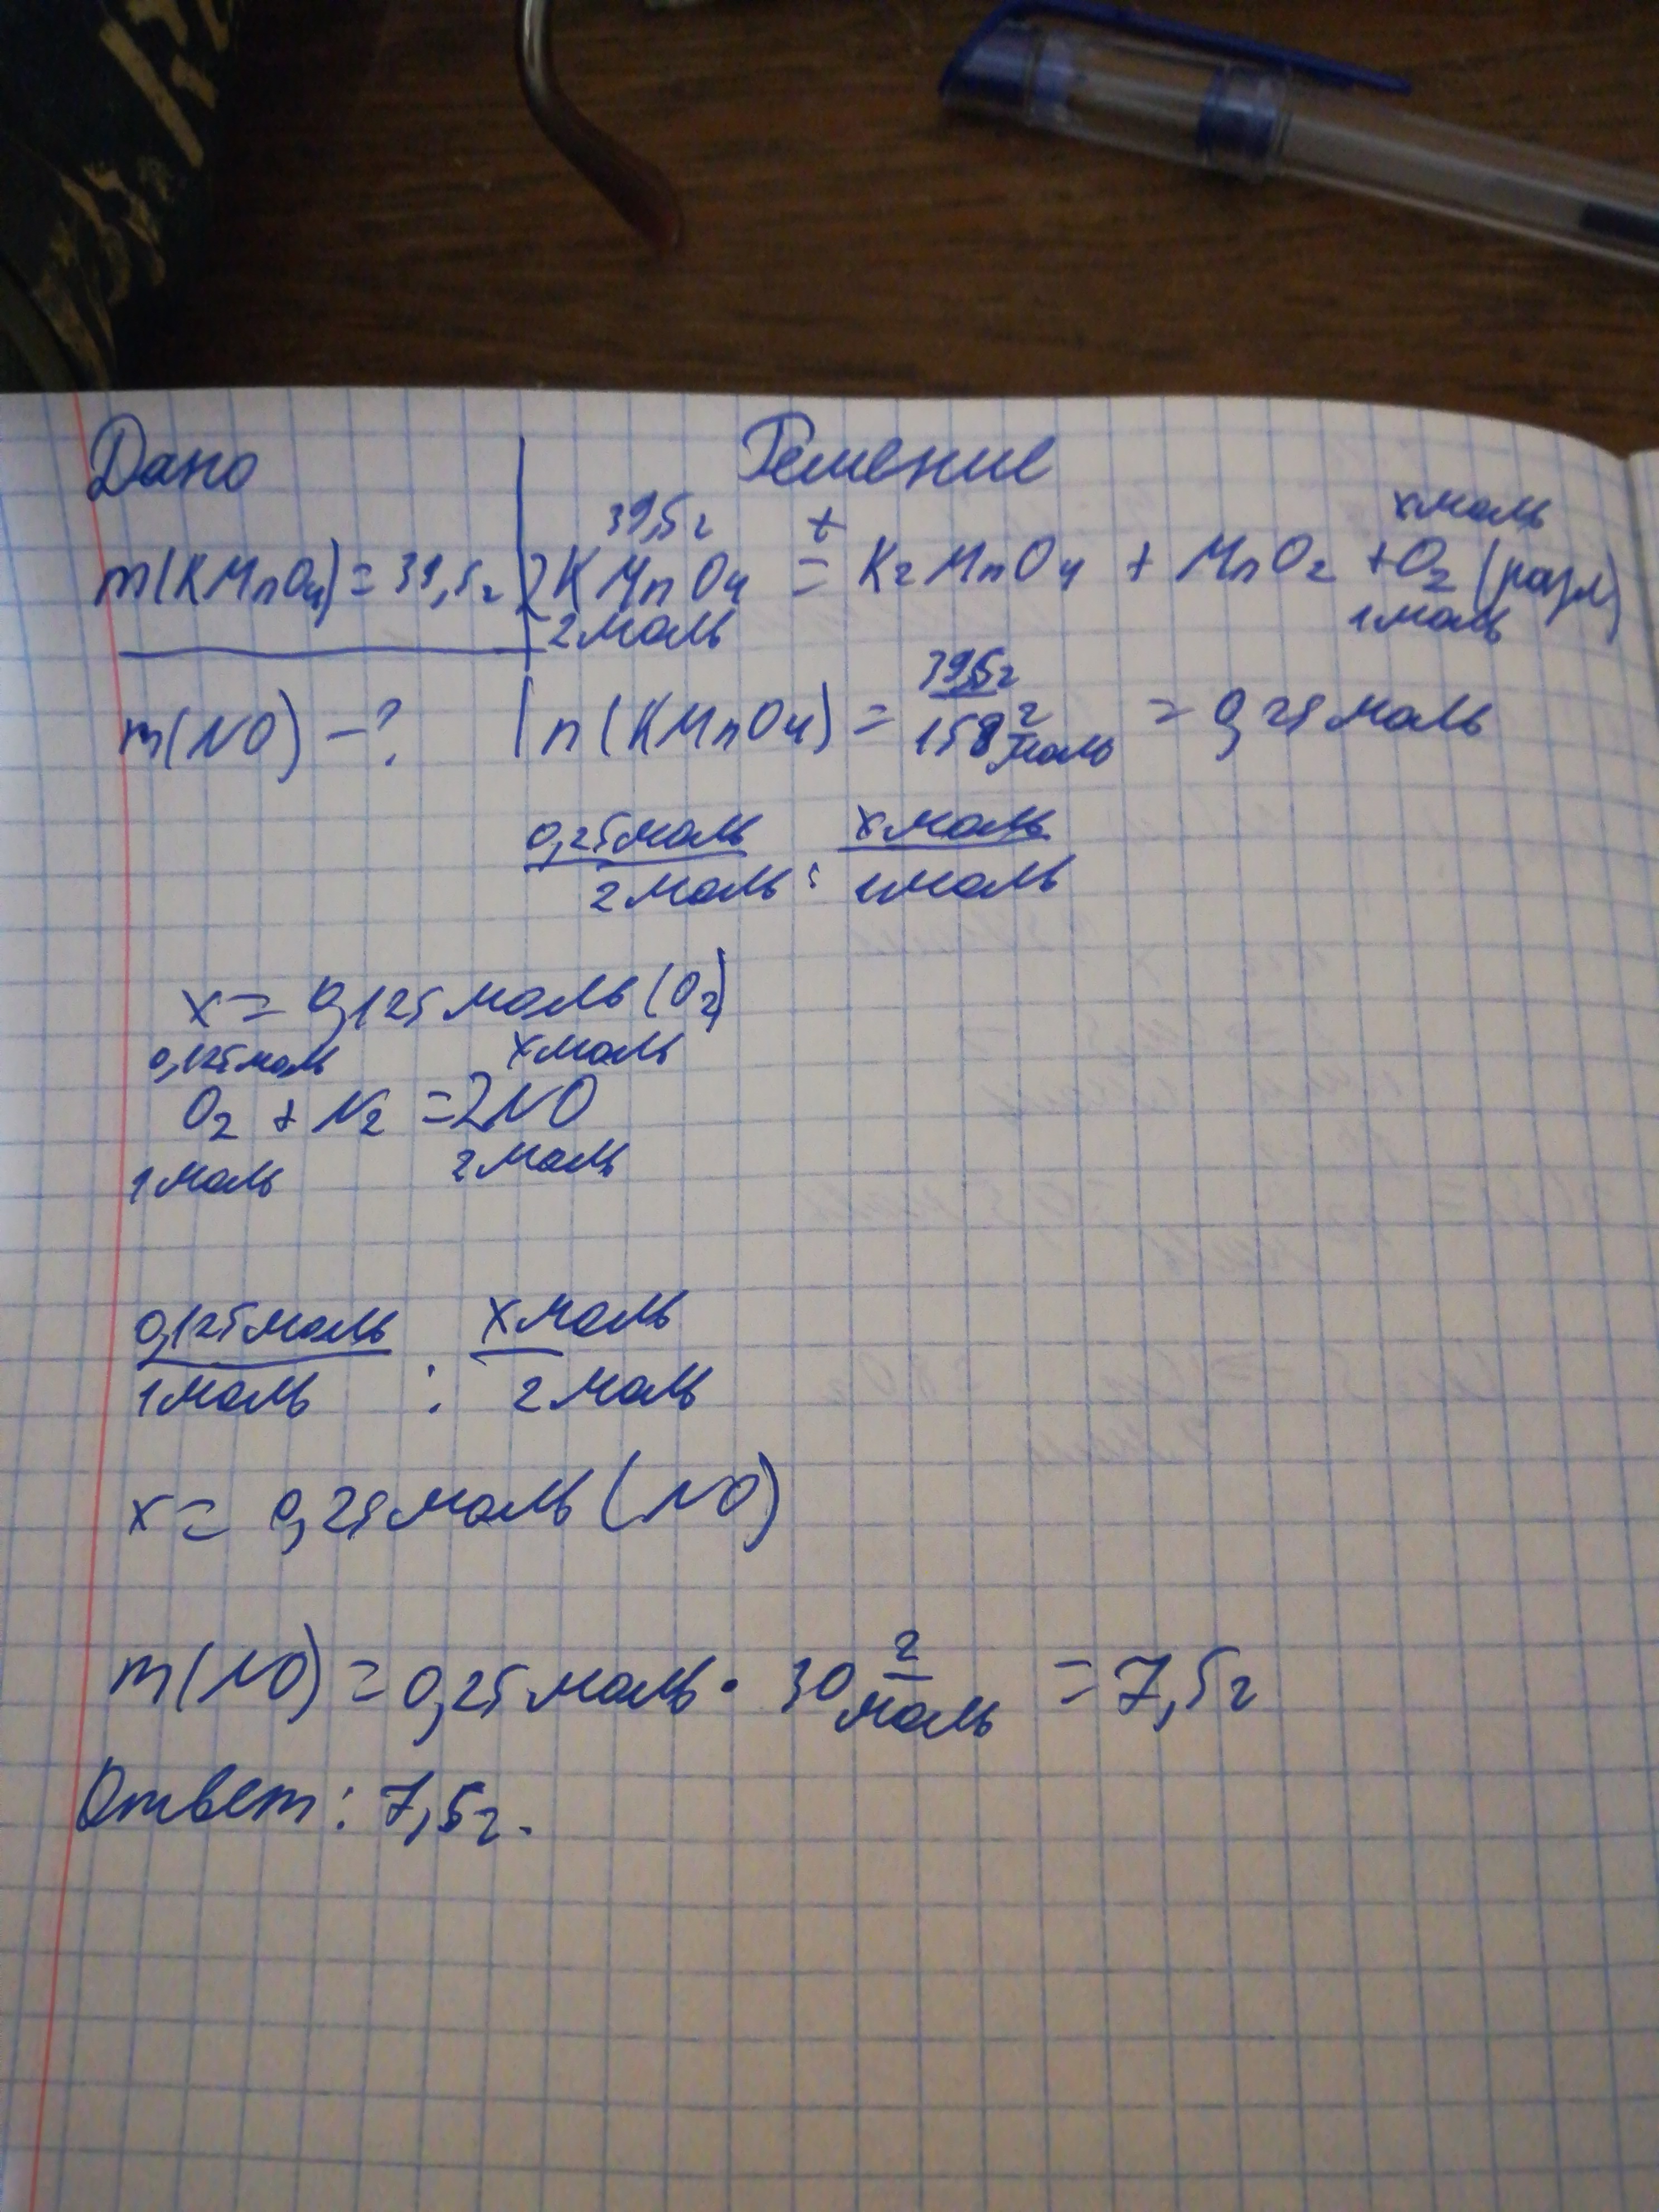 Дано Решение
39,5г t xмоль
m(KMnO4)=39,5г 2KMnO4 = K2MnO4 + MnO2 + O2 (разл)
2моль 1моль
39,5г
m(NO) -? n(KMnO4) = 158 г/моль = 0,25 моль
0,25моль xмоль
2моль : 1моль
x = 0,125 моль (O2)
0,125моль xмоль
O2 + N2 = 2NO
1моль 2моль
0,125моль xмоль
1моль : 2моль
x = 0,25моль (NO)
m(NO) = 0,25 моль · 30 г/моль = 7,5г
Ответ: 7,5г.